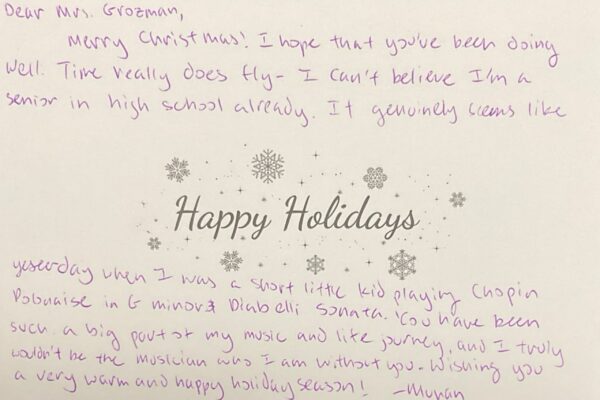 Dear Mrs. Grozman,
Merry Christmas! I hope that you've been doing
well. Time really does fly- I can't believe I'm a
senior in high school already. It genuinely seems like
Happy Holidays
yesterday when I was a short little kid playing Chopin
Polonaise in G minor & Diabelli Sonata. You have been
such a big part of my music and life journey, and I truly
wouldn't be the musician who I am without you. Wishing you
a very warm and happy holiday season! -Muhan